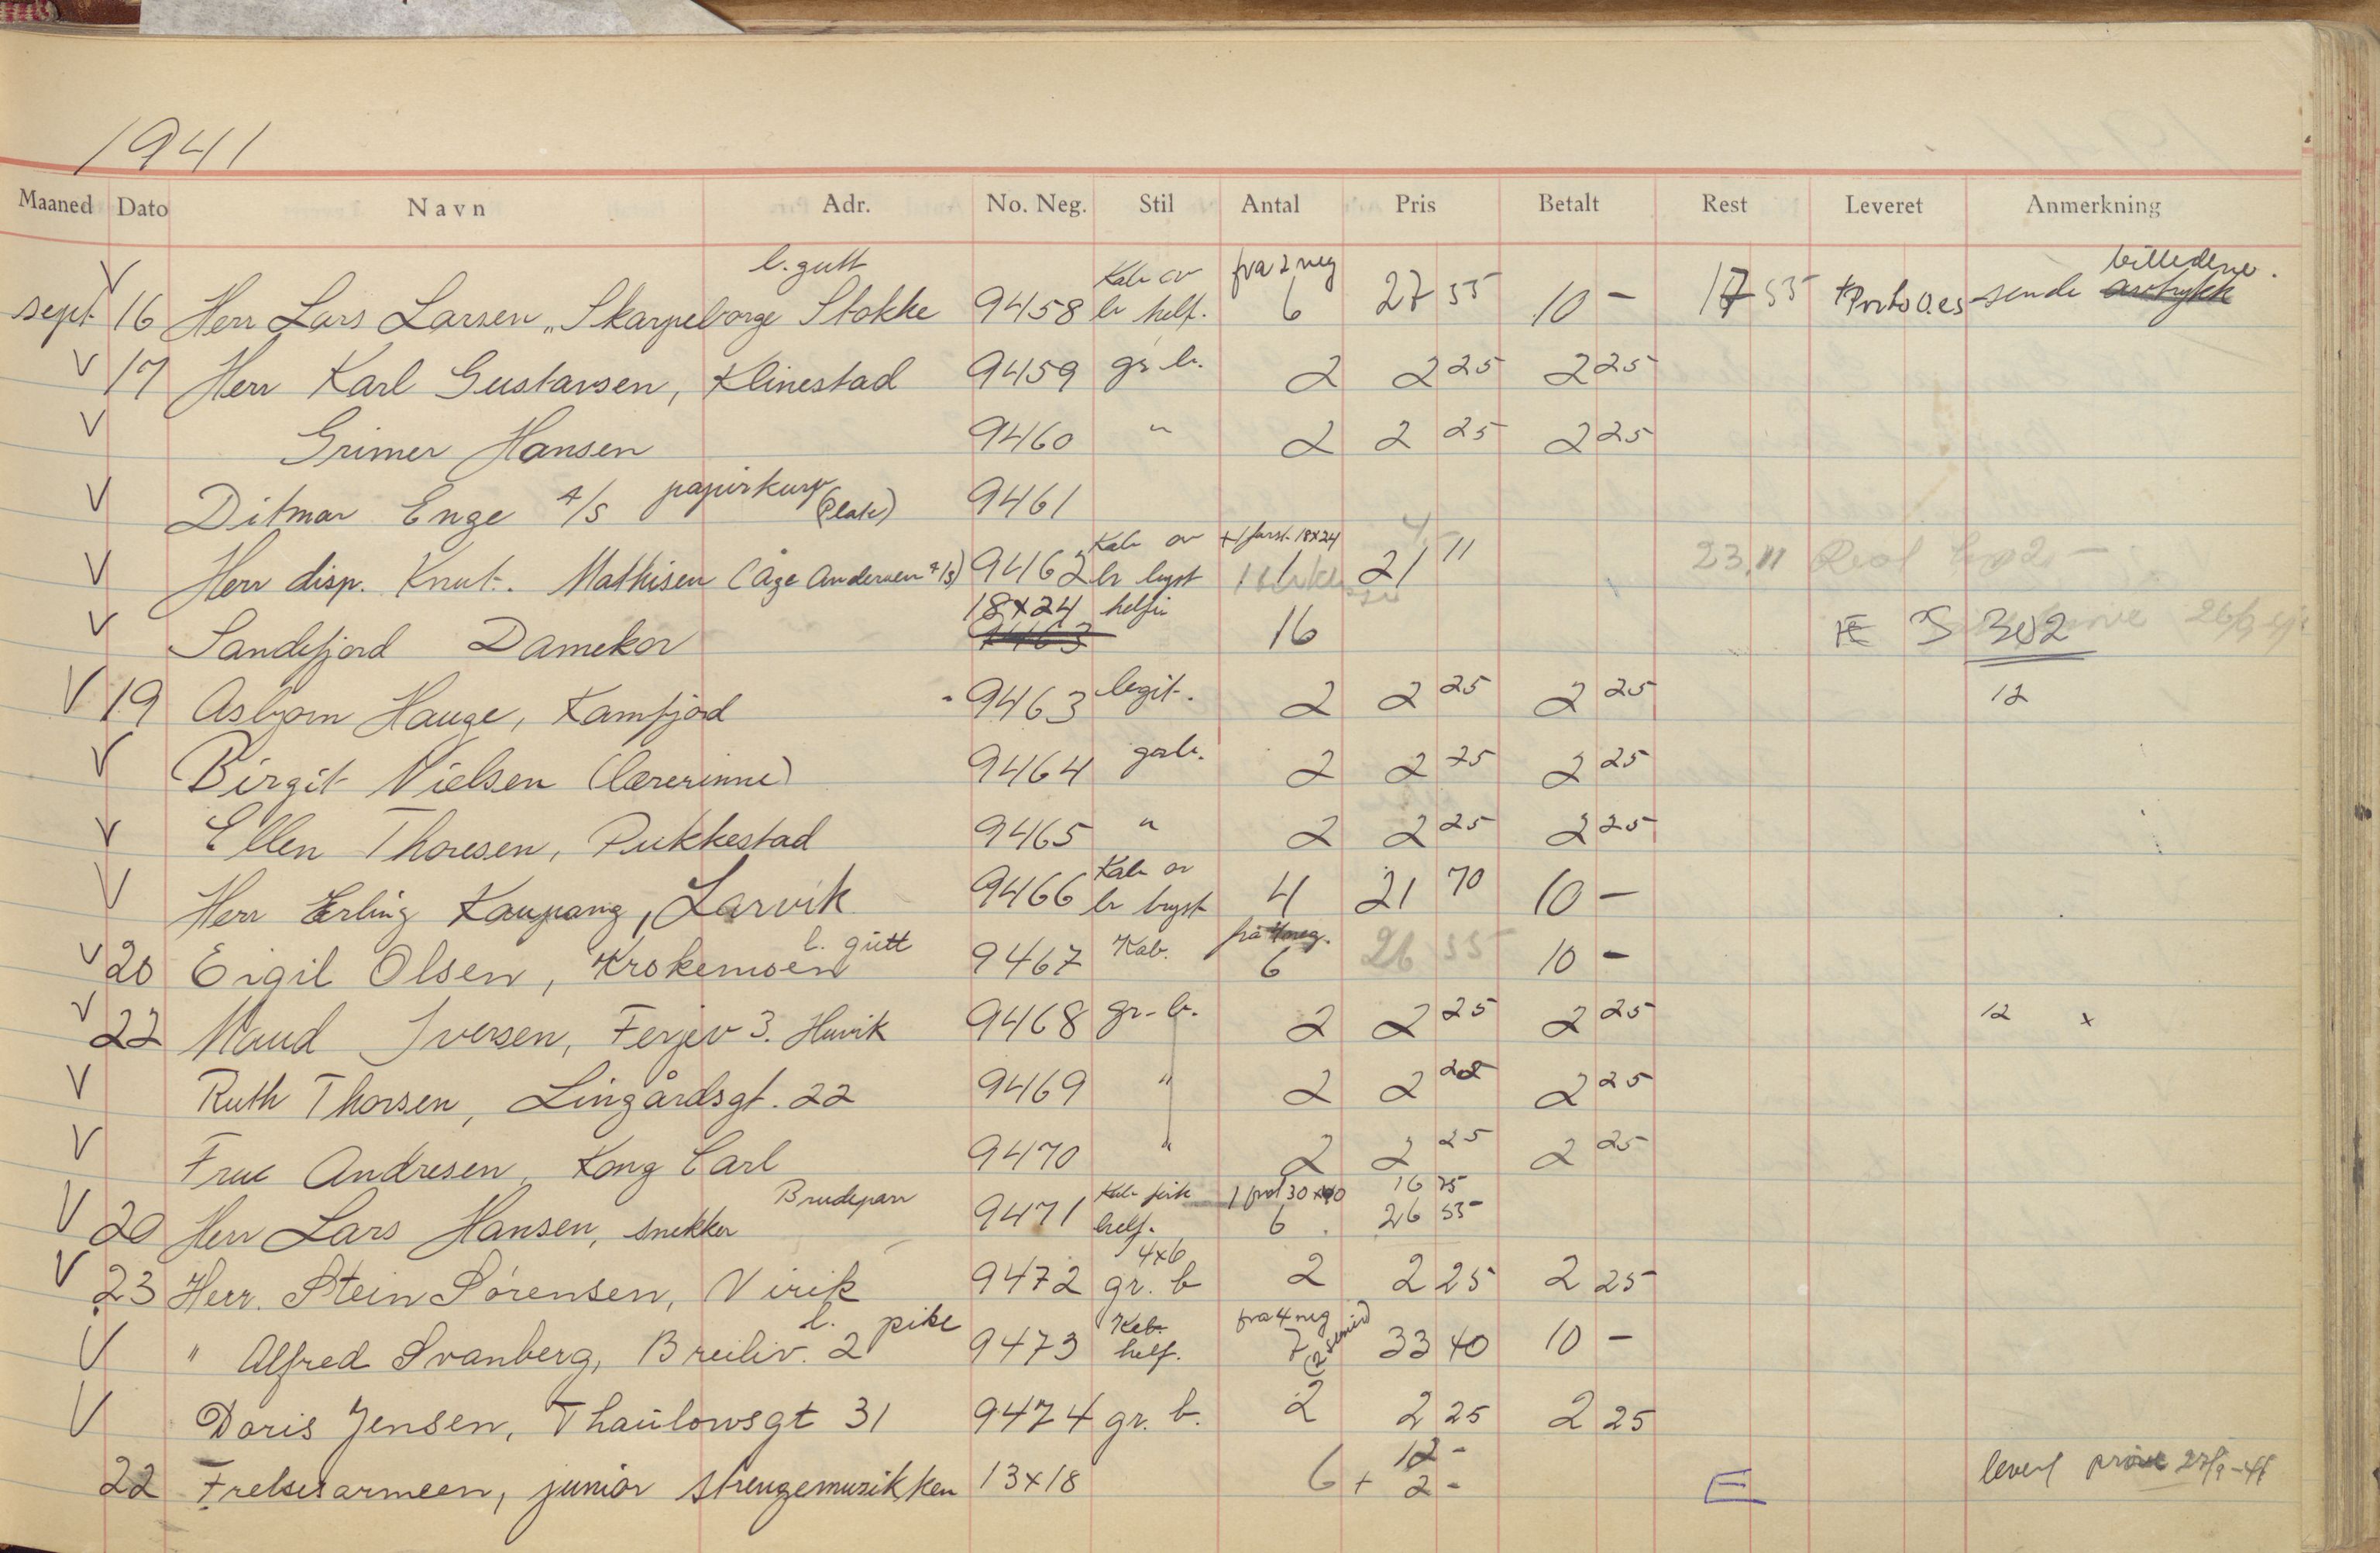 1941
Maaned Dato Navn Adr. No. Neg. Stil Antal Pris Betalt Rest Leveret Anmerkning
l. gutt Kab av fra 2 neg billedene.
V sept 16 Herr Lars Larsen "Skarpeborge Stokke 9458 br helf. 6 27 55 10 - 17 55 + Porto sende avtrykk
V 17 Herr Karl Gustavsen, Klinestad 9459 gr b. 2 2 25 2 25
V Grimer Hansen 9460 " 2 2 25 2 25
V Ditmar Enge A/S papirkurv (Plate) 9461
Kab av + 1 forst. 18x24
V Herr disp. Knut. Mathisen (Åge Andersen A/S) 9462 br byst 1 21 11 23 11
18x24 helfi
V Sandefjord Damekor 9463 16 S 302
V 19 Asbjørn Hauge, Kamfjord 9463 legit. 2 2 25 2 25 12
V Birgit Nielsen (lærerinne) 9464 gr b. 2 2 25 2 25
V Ellen Thoresen, Pukkestad 9465 " 2 2 25 2 25
Kab av
V Herr Erling Kaupang, Larvik 9466 br byst 4 21 70 10 -
l. gutt fra 4 neg.
V 20 Eigil Olsen, Krokemoen 9467 Kab. 6 26 55 10 -
V 22 Maud Iversen, Ferjev 3. Huvik 9468 gr. b. 2 2 25 2 25 12 x
V Ruth Thorsen, Lingårdsgt. 22 9469 " 2 2 25 2 25
V Frue Andresen, Kong Carl 9470 " 2 2 25 2 25
Brudepar Kab 1 forst 30x40 16 75
V 20 Herr Lars Hansen, snekker 9471 helf. 6 26 55
4x6
V 23 Herr. Stein Sørensen, Virik 9472 gr. b 2 2 25 2 25
l. pike Kab. fra 4 neg
V " Alfred Svanberg, Breiliv. 2 9473 helf. 7 33 40 10 -
V Doris Jensen, Thaulowsgt 31 9474 gr. b. 2 2 25 2 25
12 -
22 Frelsesarmeen, junior strengemusikken 13x18 6 + 2 - levert prøve 27/9-41